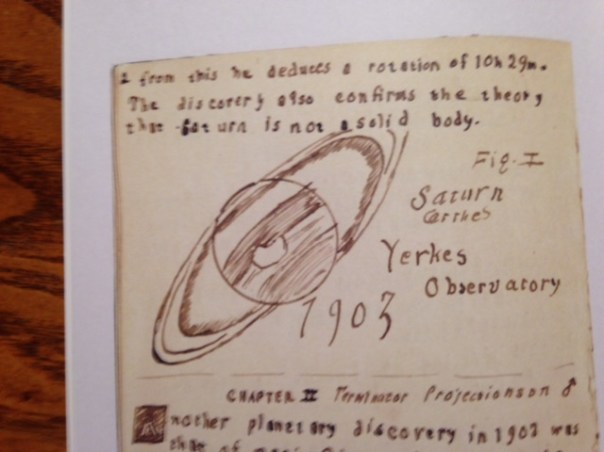 & from this he deduces a rotation of 10h 29m.
The discovery also confirms the theory
that Saturn is not a solid body.
Fig. I
Saturn
Yerkes
Observatory
1903
CHAPTER II Terminator Projections on ♂
Another planetary discovery in 1903 was
that of